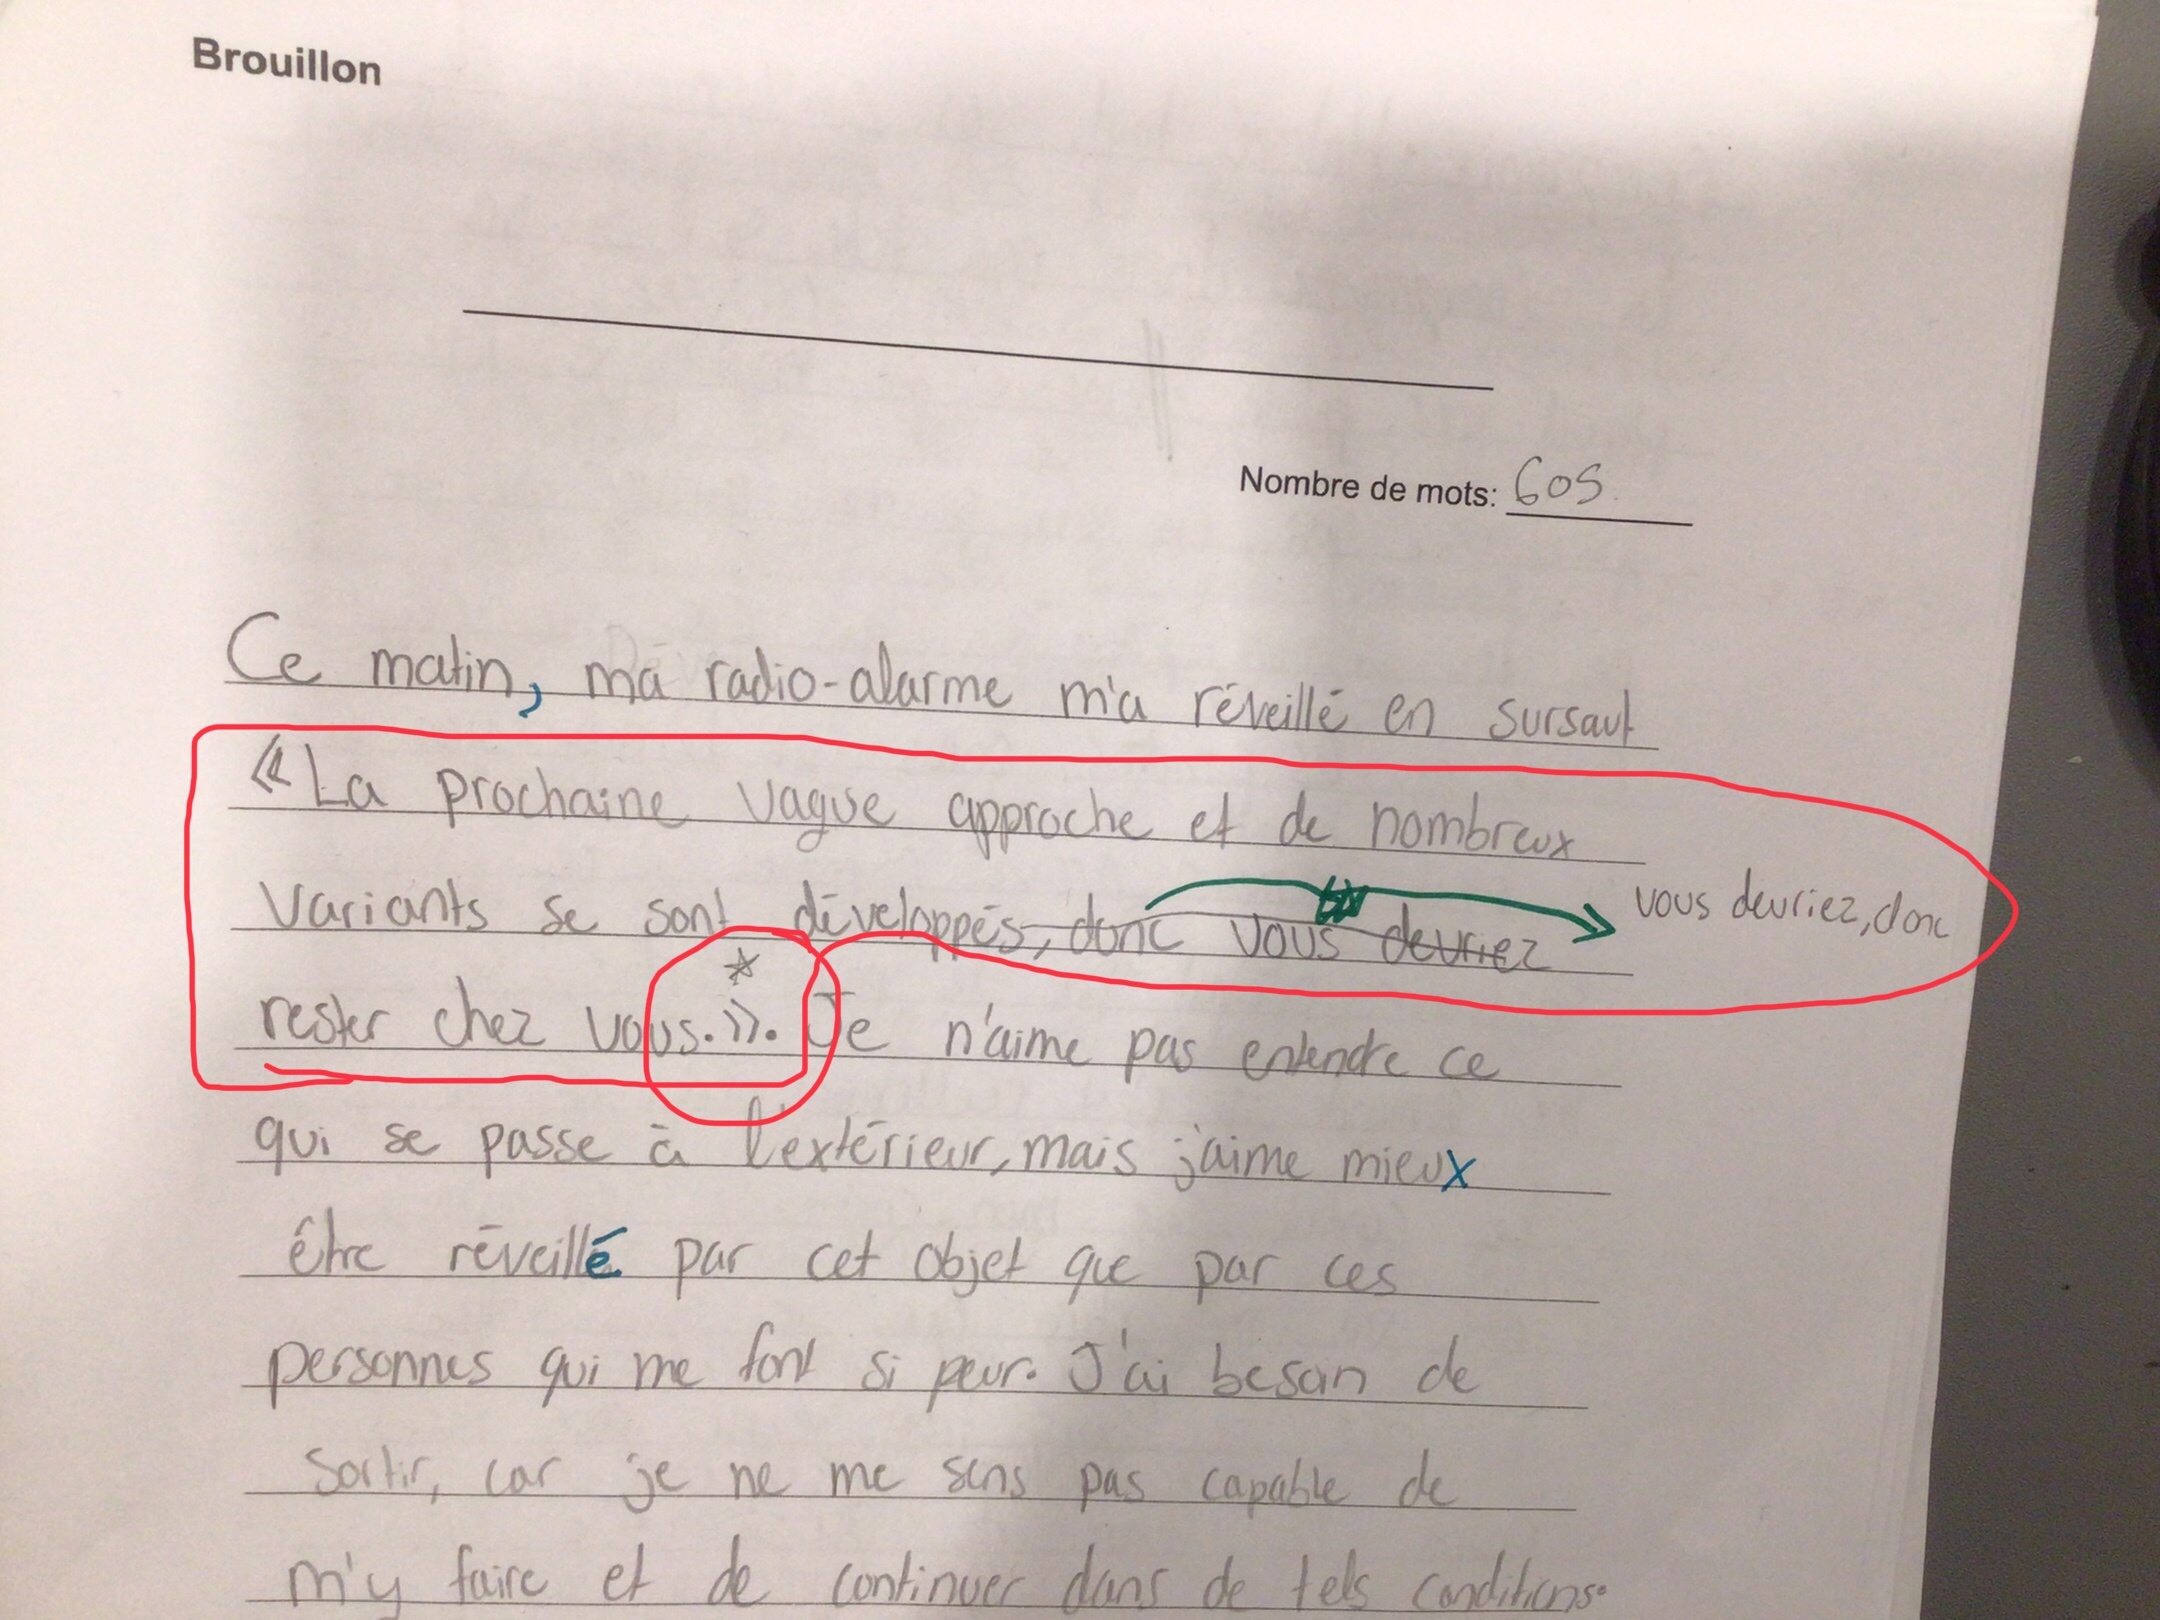 Brouillon
Nombre de mots: 605
Ce matin, ma radio-alarme m'a réveillé en sursaut
«La prochaine vague approche et de nombreux
variants se sont développés, donc vous devriez
vous devriez, donc
rester chez vous.*». Je n'aime pas entendre ce
qui se passe à l'extérieur, mais j'aime mieux
être réveillé par cet objet que par ces
personnes qui me font si peur. J'ai besoin de
sortir, car je ne me sens pas capable de
m'y faire et de continuer dans de tels conditions.